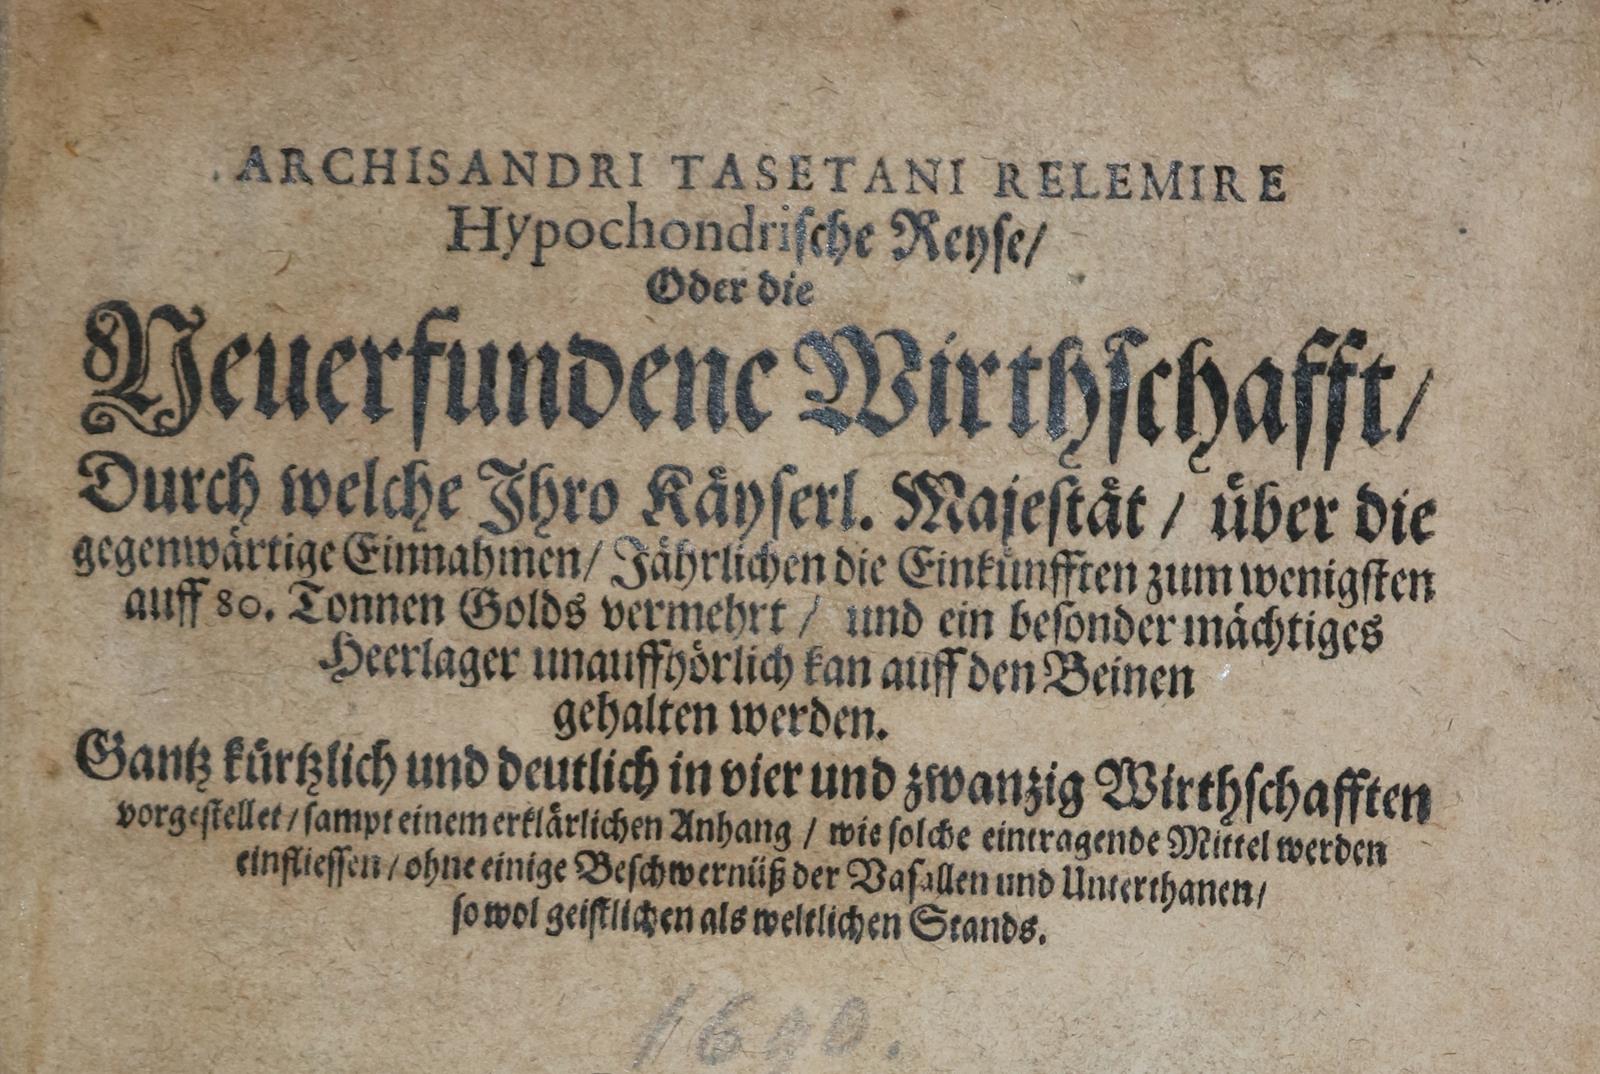 ARCHISANDRI TASETANI RELEMIRE
Hypochondriſche Reyſe/
Oder die
Neuerfundene Wirthſchafft/
Durch welche Ihro Kaͤyſerl. Majeſtaͤt / uͤber die
gegenwaͤrtige Einnahmen/ Jaͤhrlichen die Einkuͤnfften zum wenigſten
auff 80. Tonnen Golds vermehrt / und ein beſonder maͤchtiges
Heerlager unauffhoͤrlich kan auff den Beinen
gehalten werden.
Gantz kuͤrtzlich und deutlich in vier und zwanzig Wirthſchafften
vorgeſtellet / ſampt einem erklaͤrlichen Anhang / wie ſolche eintragende Mittel werden
einflieſſen / ohne einige Beſchwernuͤß der Vaſallen und Unterthanen/
ſo wol geiſtlichen als weltlichen Stands.